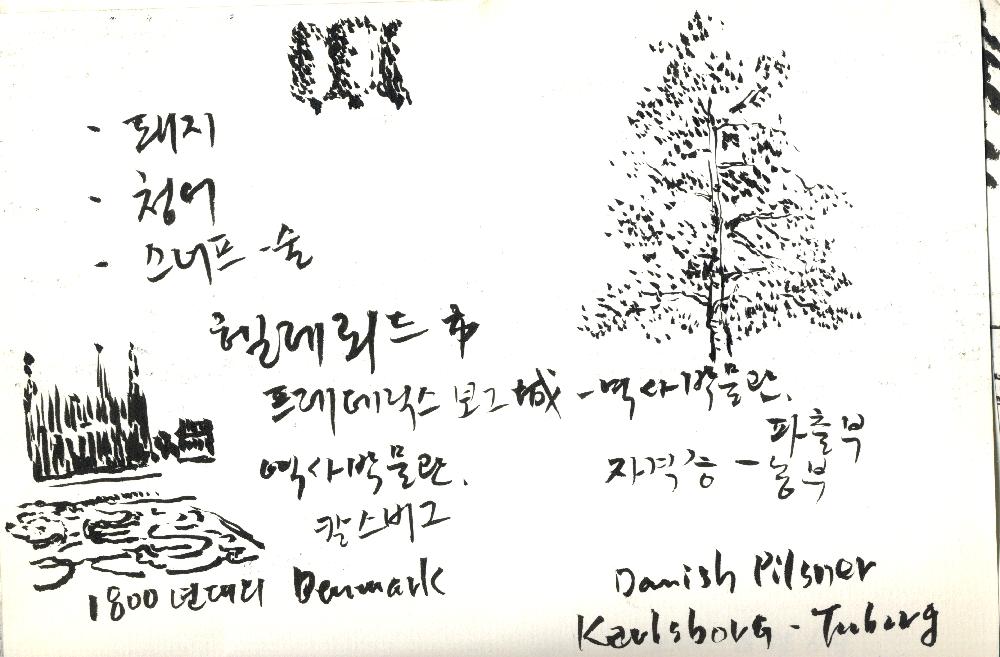 - 돼지
- 청어
- 스너프 - 술
헬레뢰드 市
프레데릭스보그城 - 역사박물관.
역사박물관.
칼스버그
파출부
자격증 - 농부
1800년대의 Denmark
Danish Pilsner
Karlsborg - Tuborg